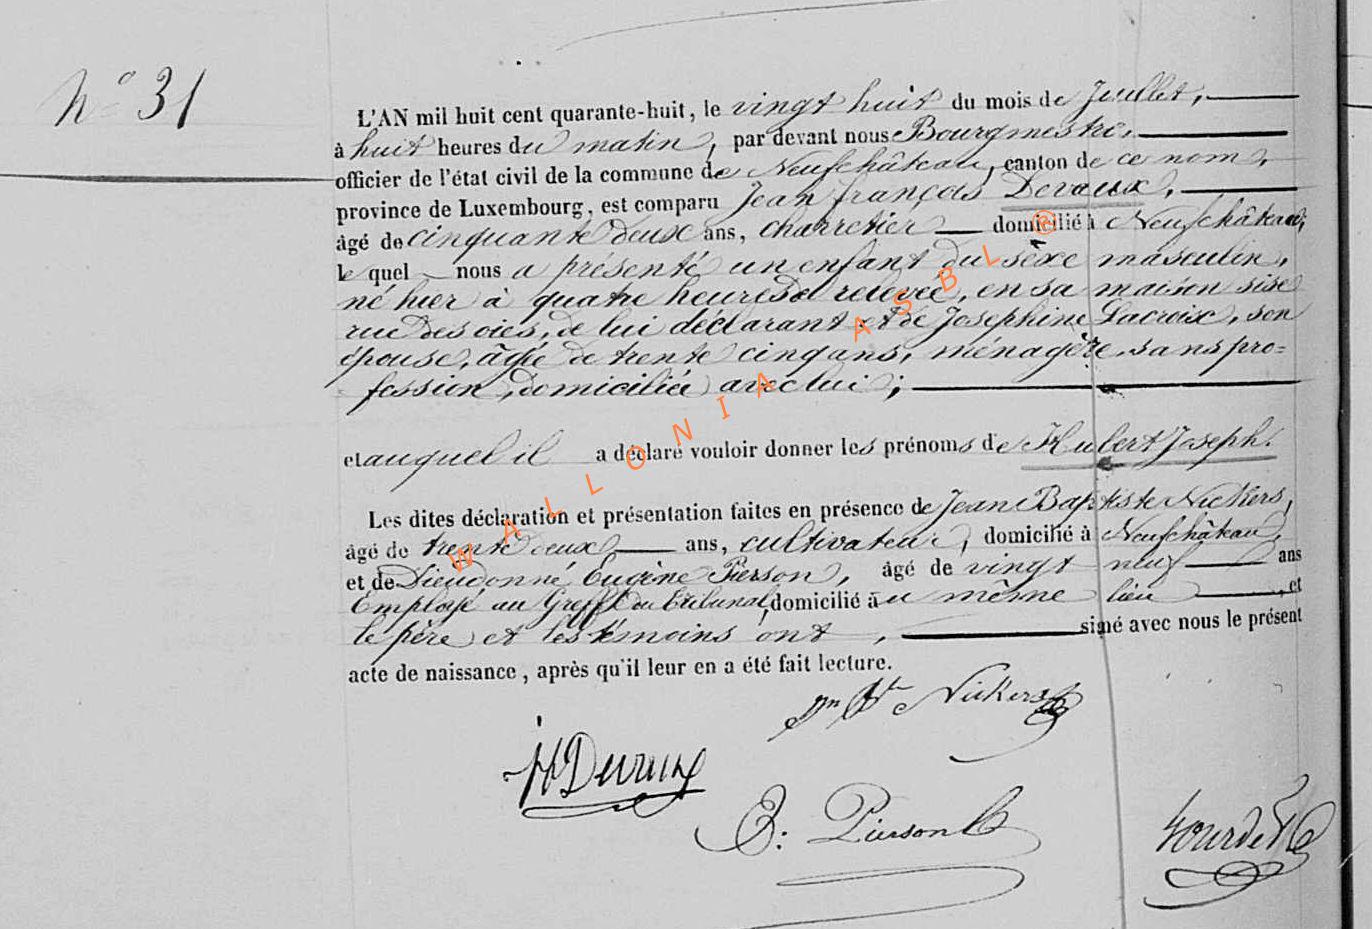 N° 31
L'AN mil huit cent quarante-huit, le vingt huit du mois de Juillet,
à huit heures du matin, par devant nous Bourgmestre,
officier de l'état civil de la commune de Neufchâteau, canton de ce nom,
province de Luxembourg, est comparu Jean françois Devaux,
âgé de cinquante deux ans, charretier domicilié à Neufchâteau,
le quel nous a présenté un enfant du sèxe masculin,
né hier à quatre heures de relevée, en sa maison sise
rue des oies, de lui déclarant et de Joséphine Lacroix, son
épouse, âgée de trente cinq ans, ménagère, sans pro=
fession, domiciliée avec lui;
et auquel il a déclaré vouloir donner les prénoms de Hubert Joseph.
Les dites déclaration et présentation faites en présence de Jean Baptiste Nickers,
âgé de trente deux ans, cultivateur, domicilié à Neufchâteau,
et de Dieudonné Eugène Pierson, âgé de vingt neuf ans
Employé au Greffe du tribunal, domicilié au même lieu, et
le père et les témoins ont, signé avec nous le présent
acte de naissance, après qu'il leur en a été fait lecture.
Jn Bte Nickers
Devaux
E. Pierson
Gourdet
WALLONIA ASBL ®